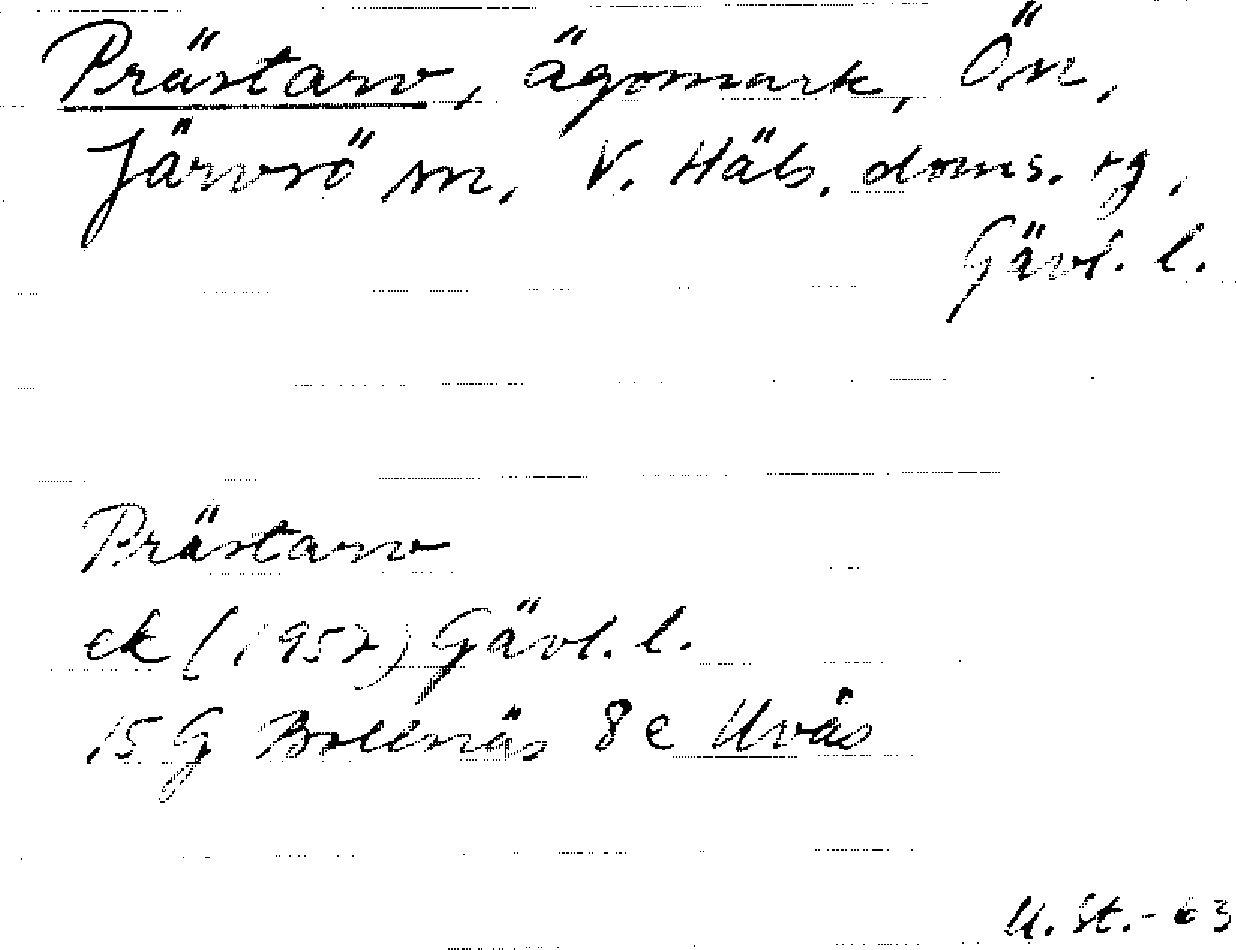 Prästarv, ägomark, Ön,
Järvsö sn, V. Häls. doms. tg,
Gävl. l.
Prästarv
ek (1957) Gävl. l.
15 G Bollnäs 8 e Uvås
U. St.-63